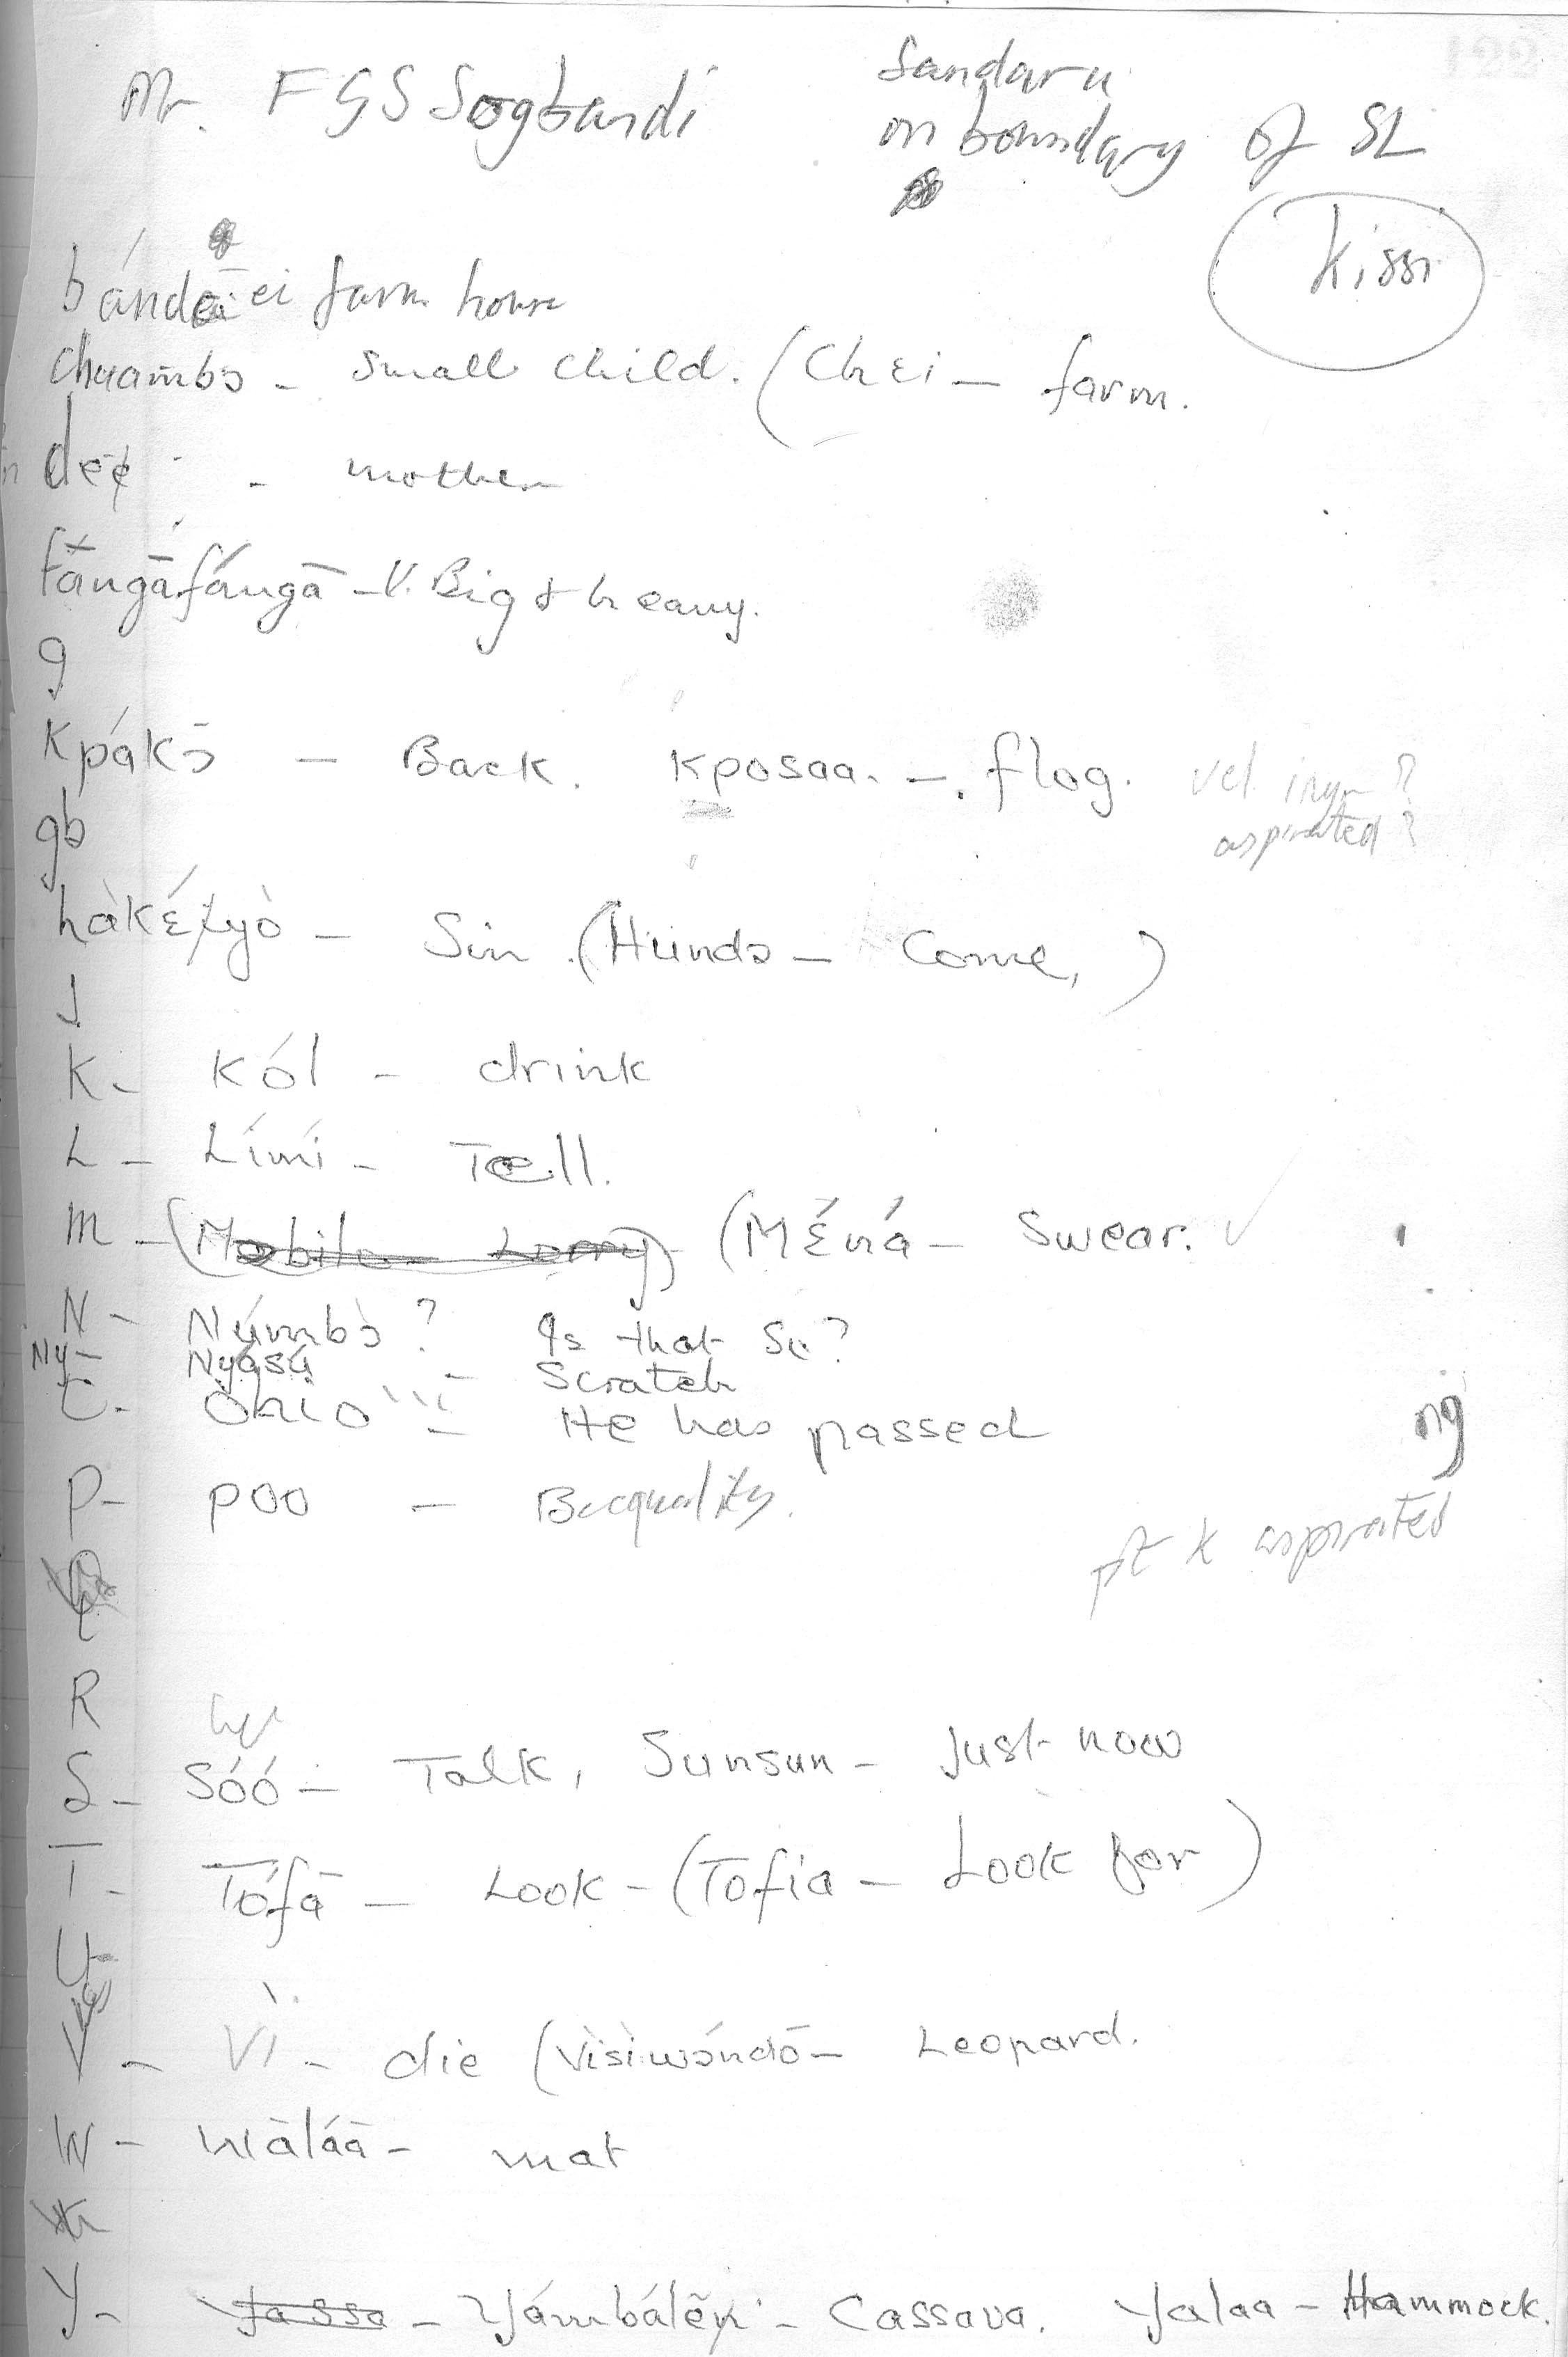 Mr. F G S Sogbandi
Sandaru
on boundary of SL
Kissi
bándei farm house
chuambɔ - small child. (Chɛi - farm.
dee - mother
fángāfángā - V. Big & heavy.
g
Kpákɔ̄ - Back. Kposaa. - flog.
aspirated?
gb
hàkɛ́yò - Sin. (Hundɔ - Come,)
J
K - Kól - drink
L - Límí - Tell.
M - (Mobile Lorry) (Mɛ́ná - Swear.
N - Númbɔ̀? Is that so?
Ny - Nyású - Scratch
Ohio - He has passed
ng
P - poo -
pt k aspirated
R
S - Sóó - Talk, Sunsun - Just now
T - Tófā - Look - (Tofia - Look for)
U -
V - Vì - die (Vìsìwɔ́ndɔ̄ - Leopard.
W - Wāláā - mat
Y - Yassa - Yámbálēn - Cassava. Yalaa - Hammock.